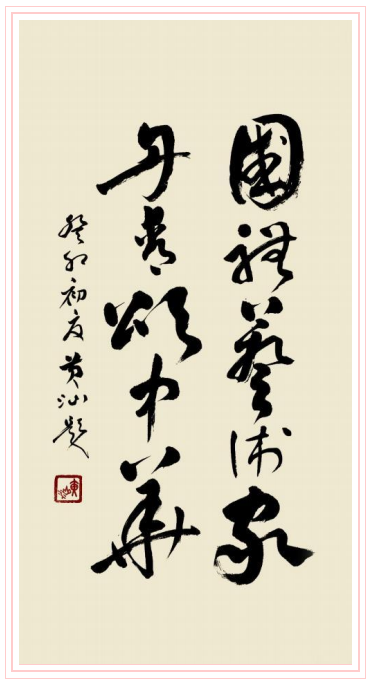 國禮藝術家
丹青頌中華
癸卯初夏黄汕題